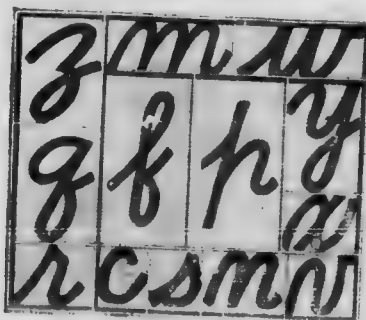 z m w
q f p y
a
r c s n v